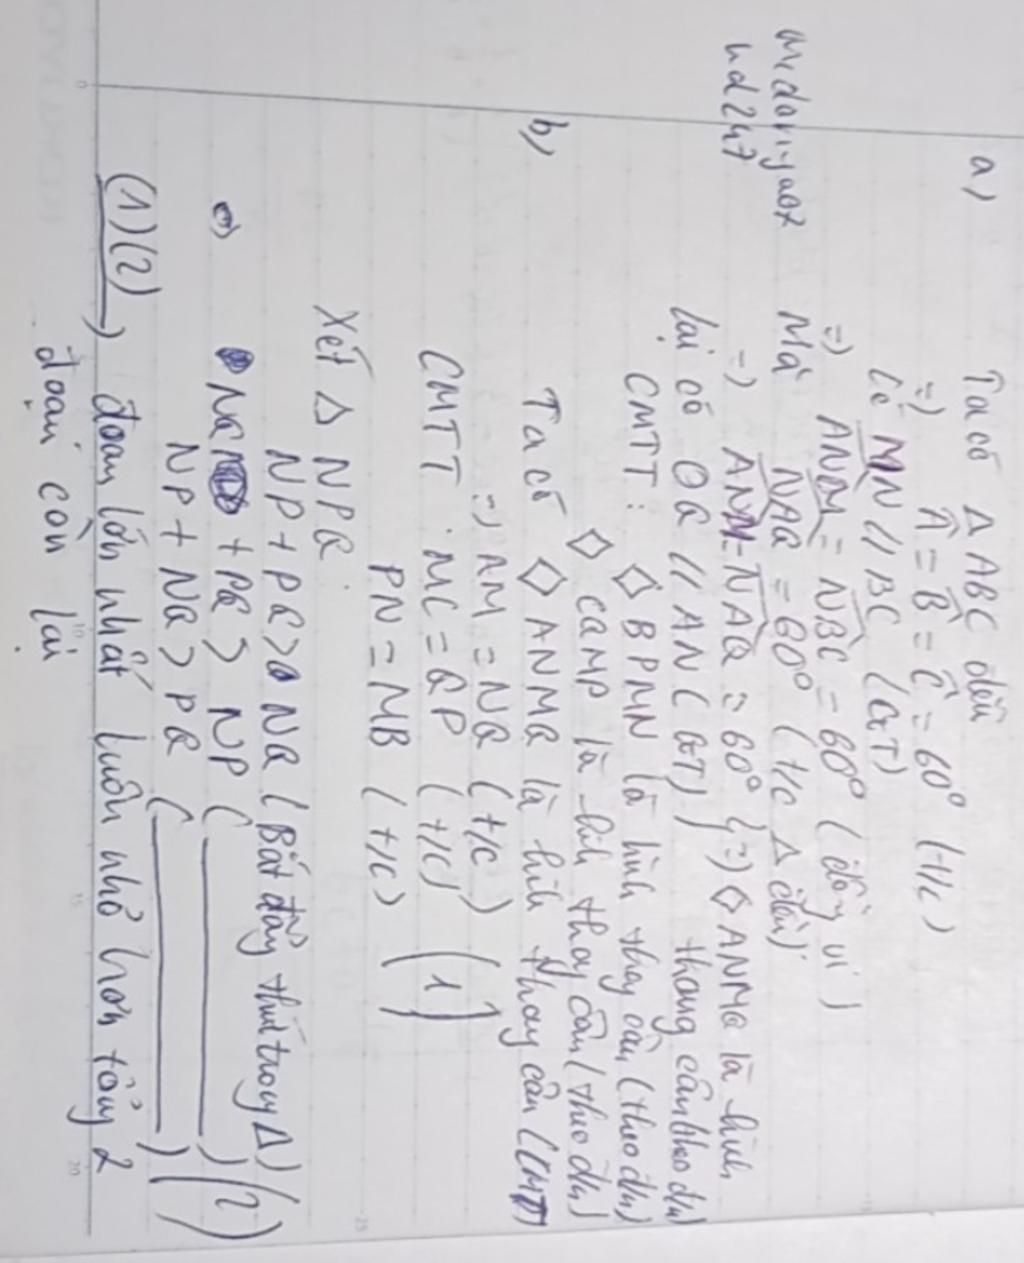 a) Ta có Δ ABC đều
=) Â = B̂ = Ĉ = 60° (t/c)
Có MN // BC (GT)
=) ANM = NBC = 60° (đồng vị)
Mà NAQ = 60° (t/c Δ đều)
=) ANM = NAQ = 60° (=) ◇ ANMQ là hình
lại có OQ // AN (GT) } thang cân (theo dh)
CMTT: ◇ BPMN là hình thang cân (theo dh)
◇ CQMP là hình thang cân (theo dh)
b) Ta có ◇ ANMQ là hình thang cân (CMT)
=) AM = NQ (t/c)
CMTT: MC = QP (t/c) (1)
PN = MB (t/c)
Xét Δ NPQ:
NP + PQ > NQ (Bất đẳng thức trong Δ)
=) NQ + PQ > NP ( ) (2)
NP + NQ > PQ ( )
(1)(2) ) đoạn lớn nhất luôn nhỏ hơn tổng 2
đoạn còn lại